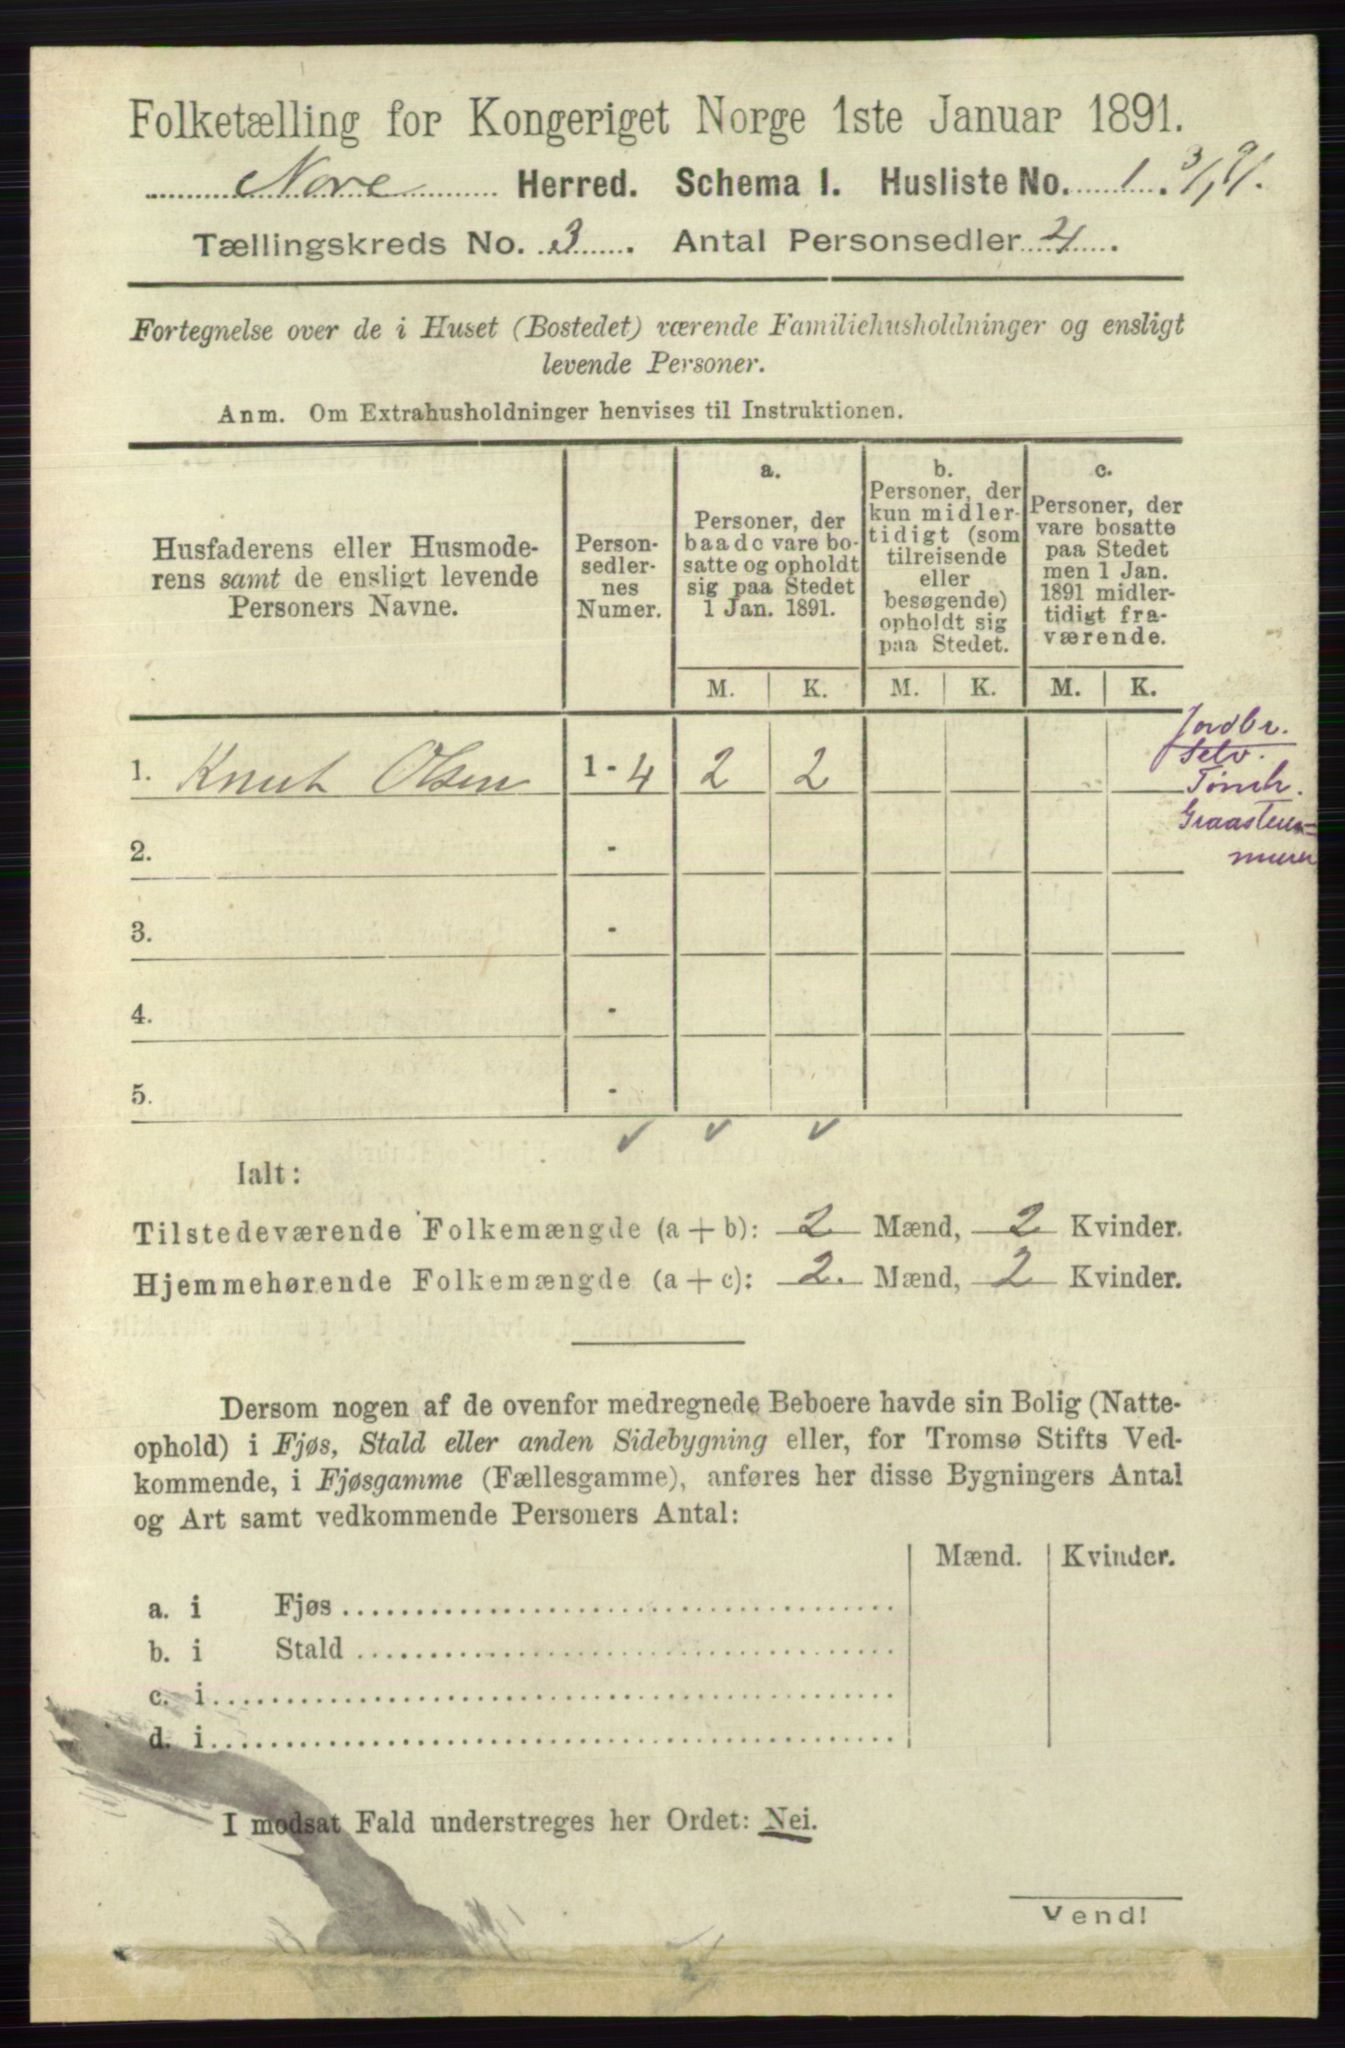 Folketælling for Kongeriget Norge 1ste Januar 1891.
Nore Herred. Schema I. Husliste No. 1. 3/1 91.
Tællingskreds No. 3. Antal Personsedler 4.
Fortegnelse over de i Huset (Bostedet) værende Familiehusholdninger og ensligt
levende Personer.
Anm. Om Extrahusholdninger henvises til Instruktionen.
Husfaderens eller Husmode-
rens samt de ensligt levende
Personers Navne.
Person-
sedler-
nes
Numer.
a.
Personer, der
baade vare bo-
satte og opholdt
sig paa Stedet
1 Jan. 1891.
b.
Personer, der
kun midler-
tidigt (som
tilreisende
eller
besøgende)
opholdt sig
paa Stedet.
c.
Personer, der
vare bosatte
paa Stedet
men 1 Jan.
1891 midler-
tidigt fra-
værende.
M. K. M. K. M. K.
1. Knut Olsen 1 - 4 2 2
Jordbr.
Selv.
Tømrh.
Graastens=
murer
2. -
3. -
4. -
5. -
Ialt:
Tilstedeværende Folkemængde (a + b): 2 Mænd, 2 Kvinder.
Hjemmehørende Folkemængde (a + c): 2. Mænd, 2 Kvinder.
Dersom nogen af de ovenfor medregnede Beboere havde sin Bolig (Natte-
ophold) i Fjøs, Stald eller anden Sidebygning eller, for Tromsø Stifts Ved-
kommende, i Fjøsgamme (Fællesgamme), anføres her disse Bygningers Antal
og Art samt vedkommende Personers Antal:
Mænd. Kvinder.
a. i Fjøs
b. i Stald
c. i
d. i
I modsat Fald understreges her Ordet: Nei.
Vend!